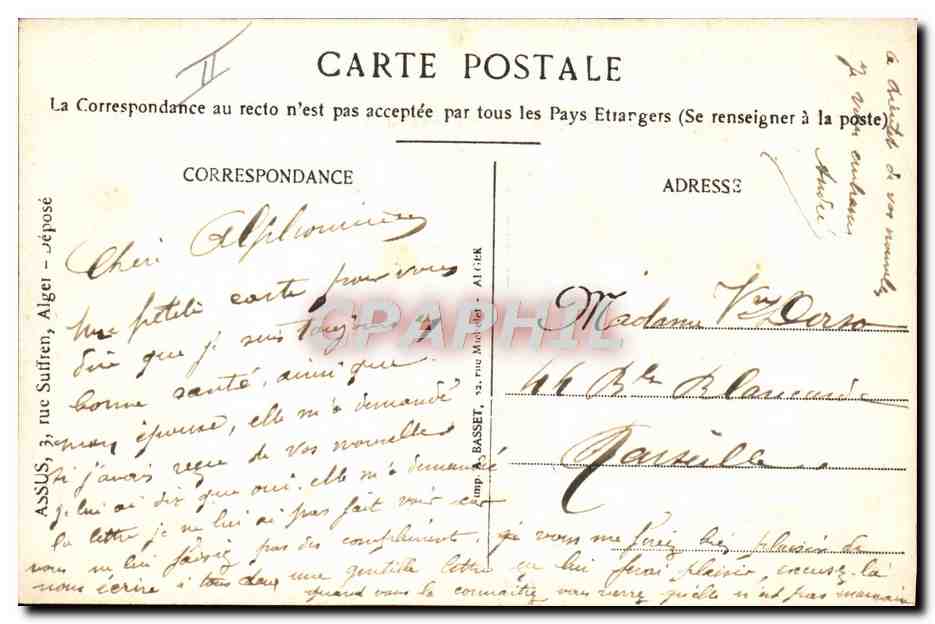 II
CARTE POSTALE
La Correspondance au recto n'est pas acceptée par tous les Pays Etrangers (Se renseigner à la poste)
CORRESPONDANCE
ADRESSE
ASSUS, 3, rue Suffren, Alger - Déposé
Imp. A. BASSET, 12, rue Michelet - ALGER
CPARPHIL
Chéri Alphonsine
Une petite carte pour vous
dire que je suis toujours en
bonne santé, ainsi que
mon épouse, elle m'a demandé
si j'avais reçue de vos nouvelles
je lui ai dit que oui, elle m'a demandé
la lettre je ne lui ai pas fait voir car
vous ne lui faisiez pas des compliments, si vous me ferez bien plaisir de
nous écrire à tous deux une gentille lettre ça lui ferai plaisir, excusez la
quand vous la connaîtrez vous verrez qu'elle n'est pas mauvaise
de vos nouvelles
Je vous embrasse
André
Madame Vve Dorso
44 Bld Blancarde
Marseille.